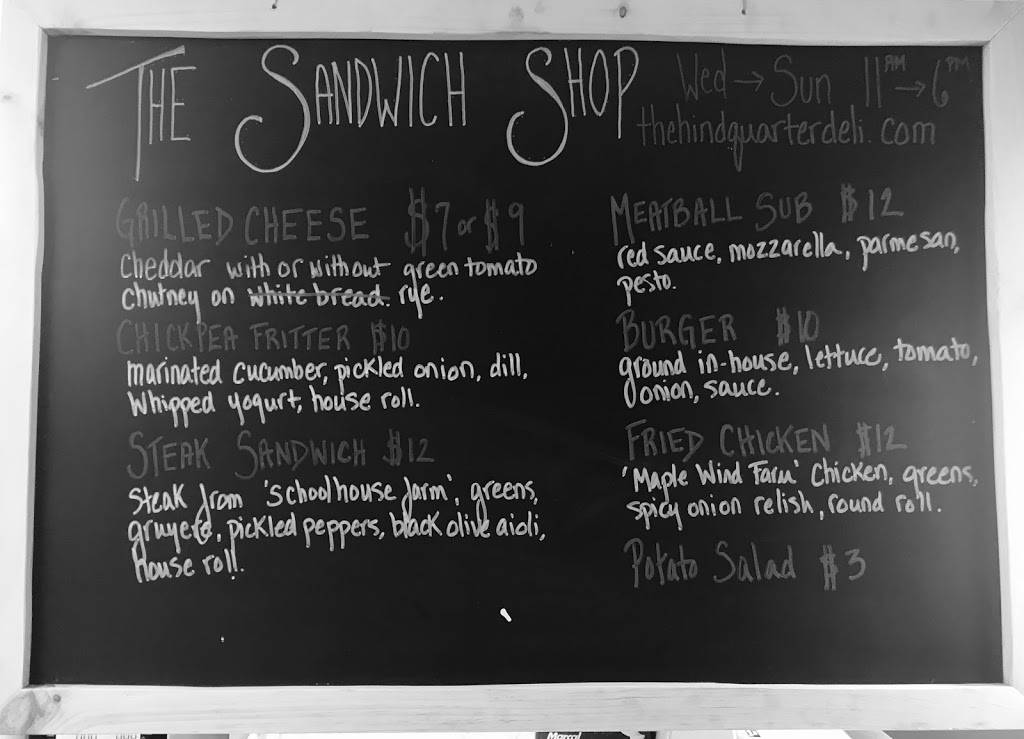 THE SANDWICH SHOP
Wed → Sun 11AM → 6PM
thehindquarterdeli.com
GRILLED CHEESE $7 or $9
Cheddar with or without green tomato
chutney on white bread. rye.
CHICKPEA FRITTER $10
marinated cucumber, pickled onion, dill,
Whipped yogurt, house roll.
STEAK SANDWICH $12
steak from 'schoolhouse farm', greens,
gruyere, pickled peppers, black olive aioli,
house roll.
MEATBALL SUB $12
red sauce, mozzarella, parmesan,
pesto.
BURGER $10
ground in-house, lettuce, tomato,
onion, sauce.
FRIED CHICKEN $12
'Maple Wind Farm' Chicken, greens,
spicy onion relish, round roll.
Potato Salad $3